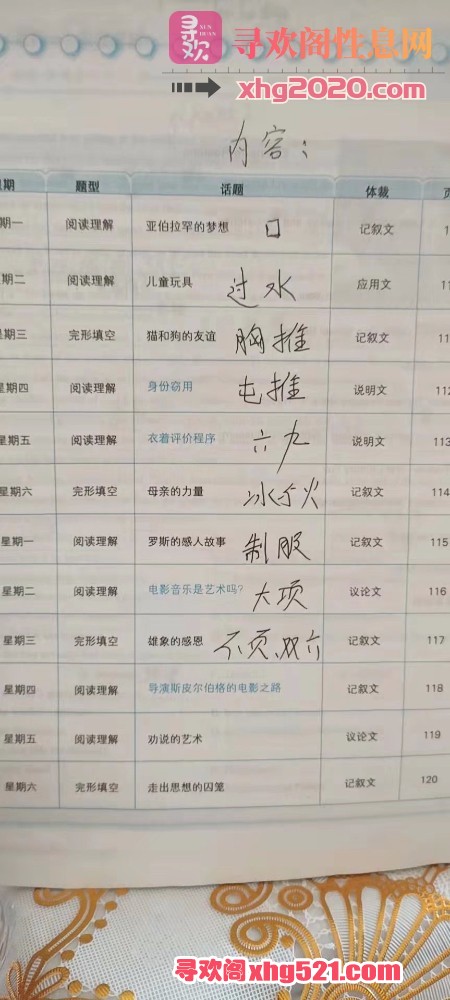 寻欢 XUN HUAN
寻欢阁性息网
xhg2020.com
内容:
星期 题型 话题 体裁 页
期一 阅读理解 亚伯拉罕的梦想 口 记叙文 1
期二 阅读理解 儿童玩具 过水 应用文 11
星期三 完形填空 猫和狗的友谊 胸推 记叙文 11
星期四 阅读理解 身份窃用 屯推 说明文 112
星期五 阅读理解 衣着评价程序 六九 说明文 113
星期六 完形填空 母亲的力量 冰个火 记叙文 114
星期一 阅读理解 罗斯的感人故事 制服 记叙文 115
星期二 阅读理解 电影音乐是艺术吗? 大项 议论文 116
星期三 完形填空 雄象的感恩 不项、双六 记叙文 117
星期四 阅读理解 导演斯皮尔伯格的电影之路 记叙文 118
星期五 阅读理解 劝说的艺术 议论文 119
星期六 完形填空 走出思想的囚笼 记叙文 120
寻欢阁xhg521.com